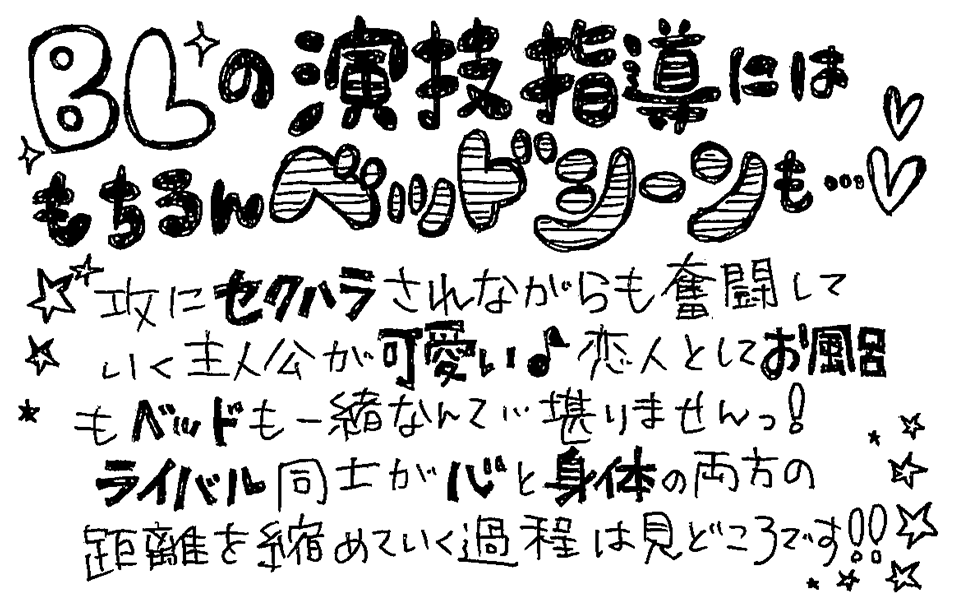 BLの演技指導には
もちろんベッドシーンも…♡
攻にセクハラされながらも奮闘して
いく主人公が可愛い♪恋人としてお風呂
もベッドも一緒なんて…堪りませんっ!
ライバル同士が心と身体の両方の
距離を縮めていく過程は見どころです!!